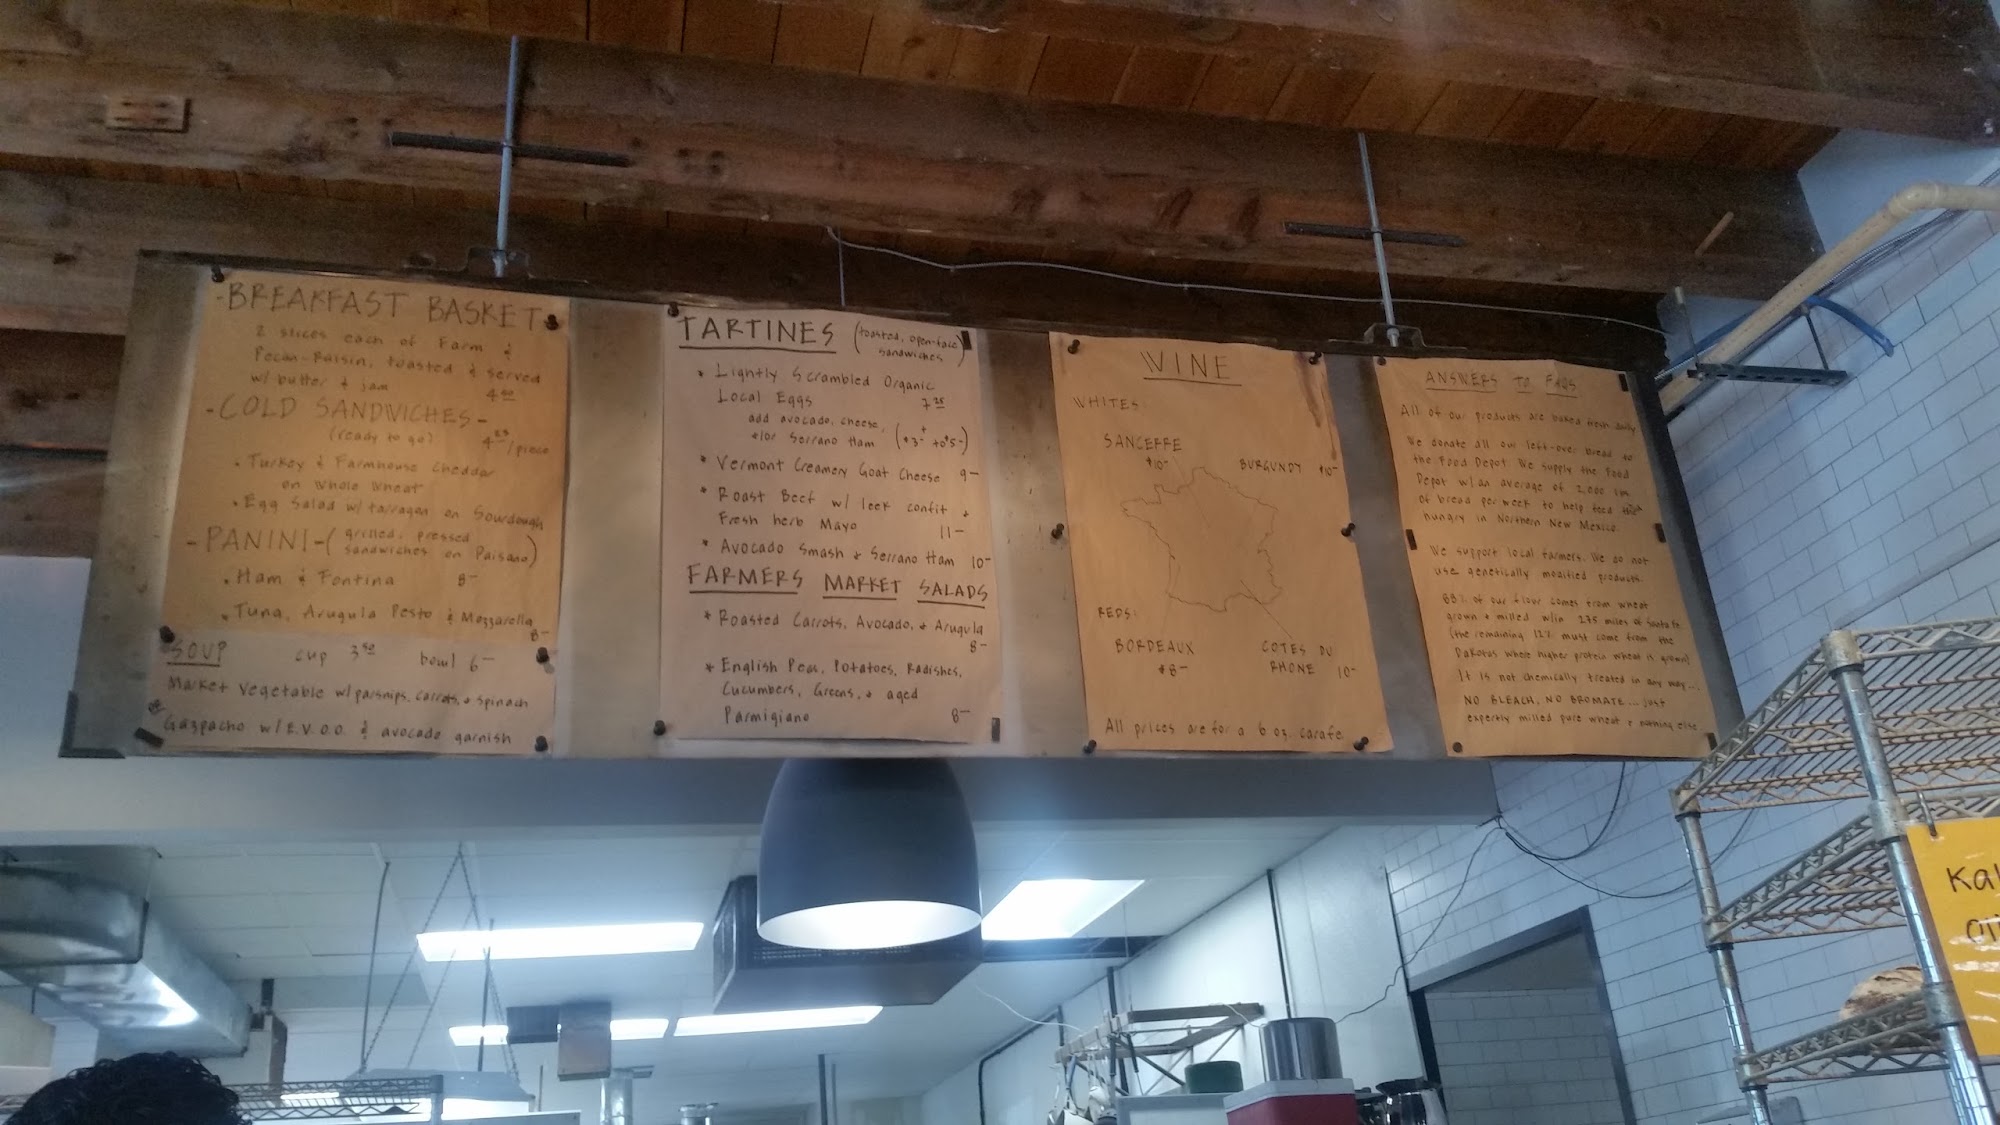 -BREAKFAST BASKET
2 slices each of Farm &
Pecan-Raisin, toasted & served
w/ butter & jam
4
-COLD SANDWICHES-
(ready to go) 4 /piece
• Turkey & Farmhouse Cheddar
on Whole Wheat
• Egg Salad w/ tarragon on Sourdough
-PANINI- (grilled, pressed
sandwiches on Paisano)
• Ham & Fontina 8-
• Tuna, Arugula Pesto & Mozzarella
8-
SOUP cup 3 bowl 6-
Market Vegetable w/ parsnips, carrots, + spinach
Gazpacho w/ E.V.O.O. & avocado garnish
TARTINES (toasted, open-face
sandwiches)
• Lightly Scrambled Organic
Local Eggs 7 25
add avocado, cheese,
+/or Serrano Ham (+$3- to $5-)
* Vermont Creamery Goat Cheese 9-
* Roast Beef w/ leek confit +
Fresh herb Mayo 11-
* Avocado Smash + Serrano Ham 10-
FARMERS MARKET SALADS
* Roasted Carrots, Avocado, + Arugula
8-
* English Peas, Potatoes, Radishes,
Cucumbers, Greens, + aged
Parmigiano 8-
WINE
WHITES:
SANCERRE
$10-
BURGUNDY $10-
REDS:
BORDEAUX
$8-
COTES DU
RHONE 10-
All prices are for a 6 oz. carafe.
ANSWERS TO FAQS
All of our products are baked fresh daily
We donate all our left-over bread to
the Food Depot. We supply the Food
Depot w/ an average of 2,000 lbs.
of bread per week to help feed the
hungry in Northern New Mexico.
We support local farmers. We do not
use genetically modified products.
88% of our flour comes from wheat
grown + milled w/in 275 miles of Santa Fe
(the remaining 12% must come from the
Dakotas where higher protein wheat is grown)
It is not chemically treated in any way...
NO BLEACH, NO BROMATE... just
expertly milled pure wheat & nothing else
Kal